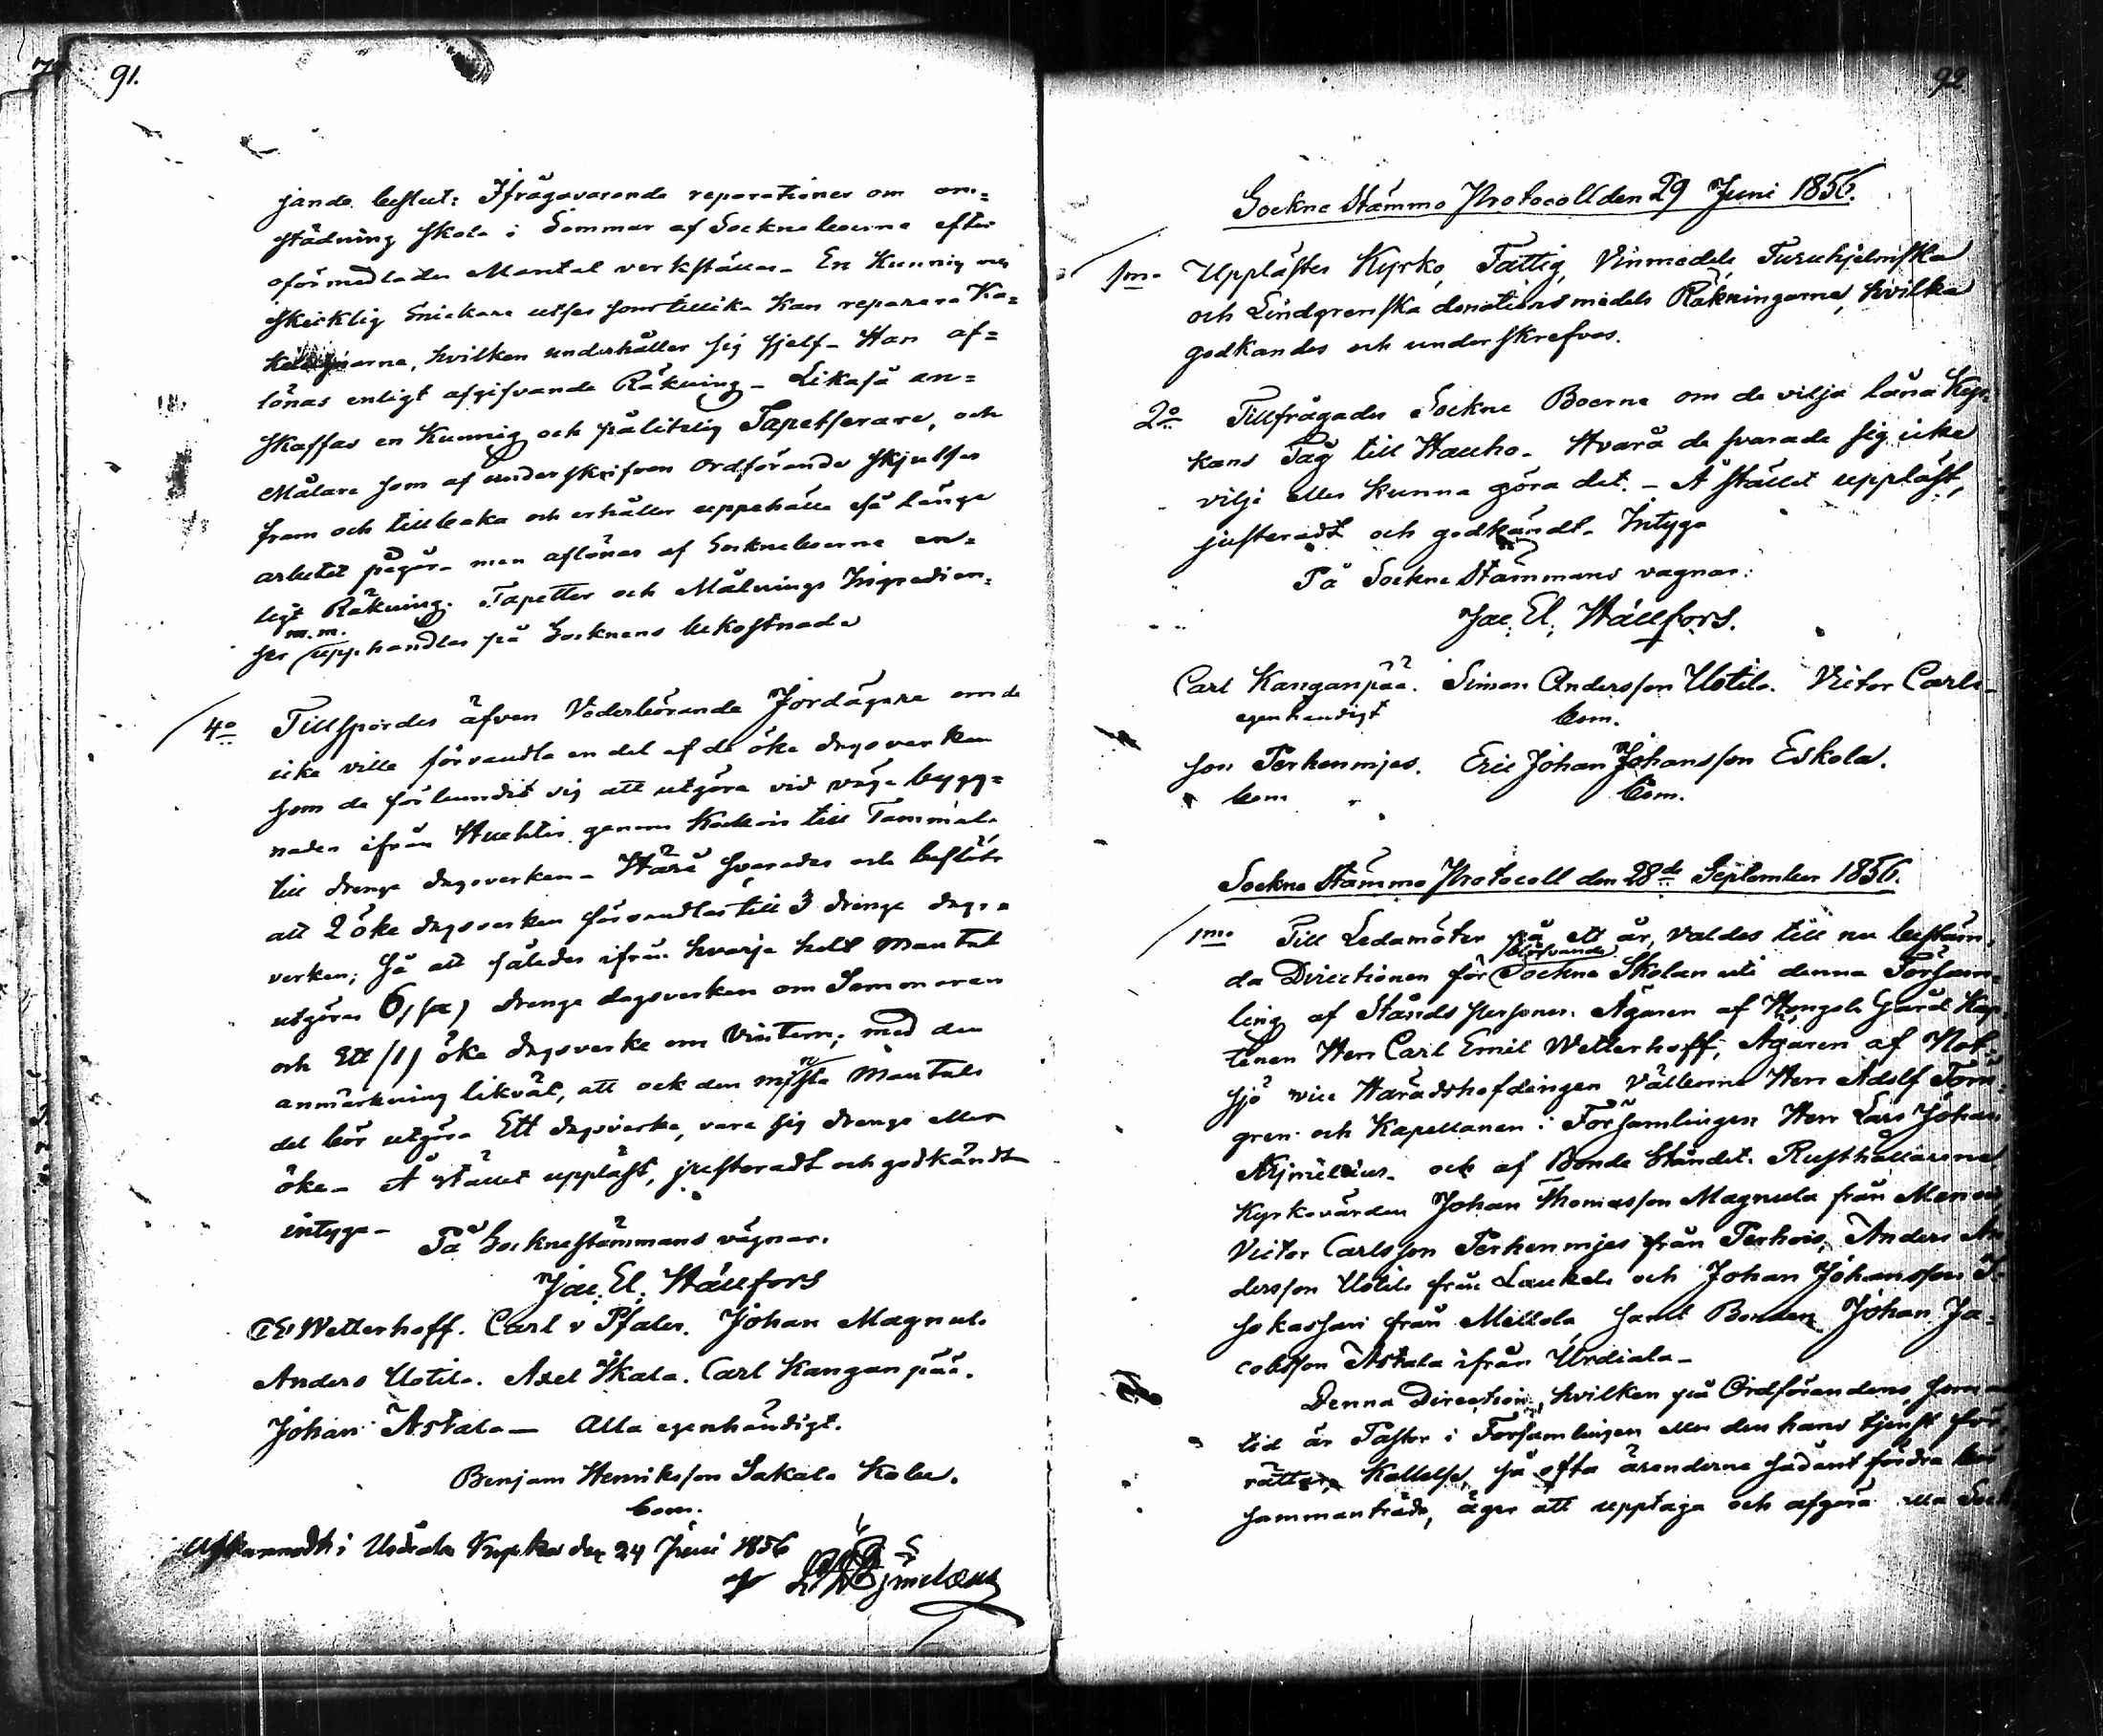 91.
jande beslut: Ifrågavarande reparationer om om=
städning skola i Sommar af Socknaboerna efter
oförmedlade Mantal verkställas. En Kunnig och
skicklig Snickare utses som tillika Kan reparera Ka=
kelugnarna, hvilken underhåller sig sjelf. Han af=
lönas enligt afgifvande Räkning. Likaså an=
skaffas en Kunnig och pålitelig Tapetserare, och
Målare som af underskrifven Ordförande skjutsas
fram och tillbaka och erhåller uppehälle så länge
arbetet pågår men aflönas af Socknaboerna en=
ligt Räkning. Tapetter och Målnings Ingredien=
m.m.
ser upphandlas på Socknens bekostnad
4o Tillspordes äfven Vederbörande Jordägare om de
icke ville förvandla en del af de öke dagsverken
som de förbundit sig att utgöra vid väga bygg=
naden ifrån Huhtis genom Kockois till Tammela
till drenge dagsverken. Härå svarades och beslöts
att 2 öke dagsverken förvandlas till 3 drenge dags=
verken; Så att således ifrån hvarje helt Mantal
utgöres 6, drenge dagsverken om Sommaren
och Ett /1/ öke dagsverke om Vintern; med den
anmärkning likväl, att ock den minsta Mantals
del bör utgöra Ett dagsverke, vare sig drenge eller
öke. Å stället uppläst, justeradt och godkändt
intyga.
På Socknestämmans vägnar.
Jac. El. Hällfors
CE Wetterhoff. Carl v Pfaler. Johan Magnula
Anders Uotila. Axel Skala. Carl Kanganpää.
Johan Astala — Alla egenhändigt.
Benjam Henriksson Sakala Kolu.
bom.
i Urdiala Kyrka den 24 Juni 1856
92.
Sockne Stämmo Protocoll den 29 Juni 1856.
1mo Upplästes Kyrko, Fattig, Vinmedels, Furuhjelmska
och Lindgrenska donationsmedels Räkningarna, hvilka
godkändes och underskrefvos.
2o Tillfrågades Sockne Boerne om de vilja låna Kyr
kans Tåg till Hauho. Hvarå de svarade sig icke
vilja eller kunna göra det. - Å stället uppläst,
justeradt och godkändt. Intyga
På Sockne Stämmans vägnar:
Jac. El. Hällfors.
Carl Kanganpää. Simon Andersson Uotila. Victor Carls-
egenhändigt bom.
son Perhenmies. Eric Johan Johansson Eskola.
bom bom.
Sockne Stämmo Protocoll den 28de September 1856.
1mo Till Ledamöter på ett år, valdes till nu bestäm
blifvande
da Directionen för Sockne Skolan uti denna Försam=
ling af Ståndspersoner. Ägaren af Hongola Gård Kap=
tenen Herr Carl Emil Wetterhoff, Ägaren af Not=
sjö vice Häradshöfdingen Vällborne Herr Adolf Törn=
gren och Kapellanen i Församlingen Herr Lars Johan
och af Bonde Ståndet. Rusthållarene
Kyrkovärden Johan Thomasson Magnula från
Victor Carlsson Perhenmies från Perhois, Anders An
dersson Uotila från Laukela och Johan Johansson
från Mellola samt Bonden Johan Ja=
cobsson Astala ifrån Urdiala.
Denna Direction, hvilken på Ordförandens, som
tid är Pastor i Församlingen eller den hans tjenst för
rättar, Kallelse, så ofta ärenderne sådant fordra bör
sammanträda, äger att upptaga och afgöra alla Sock